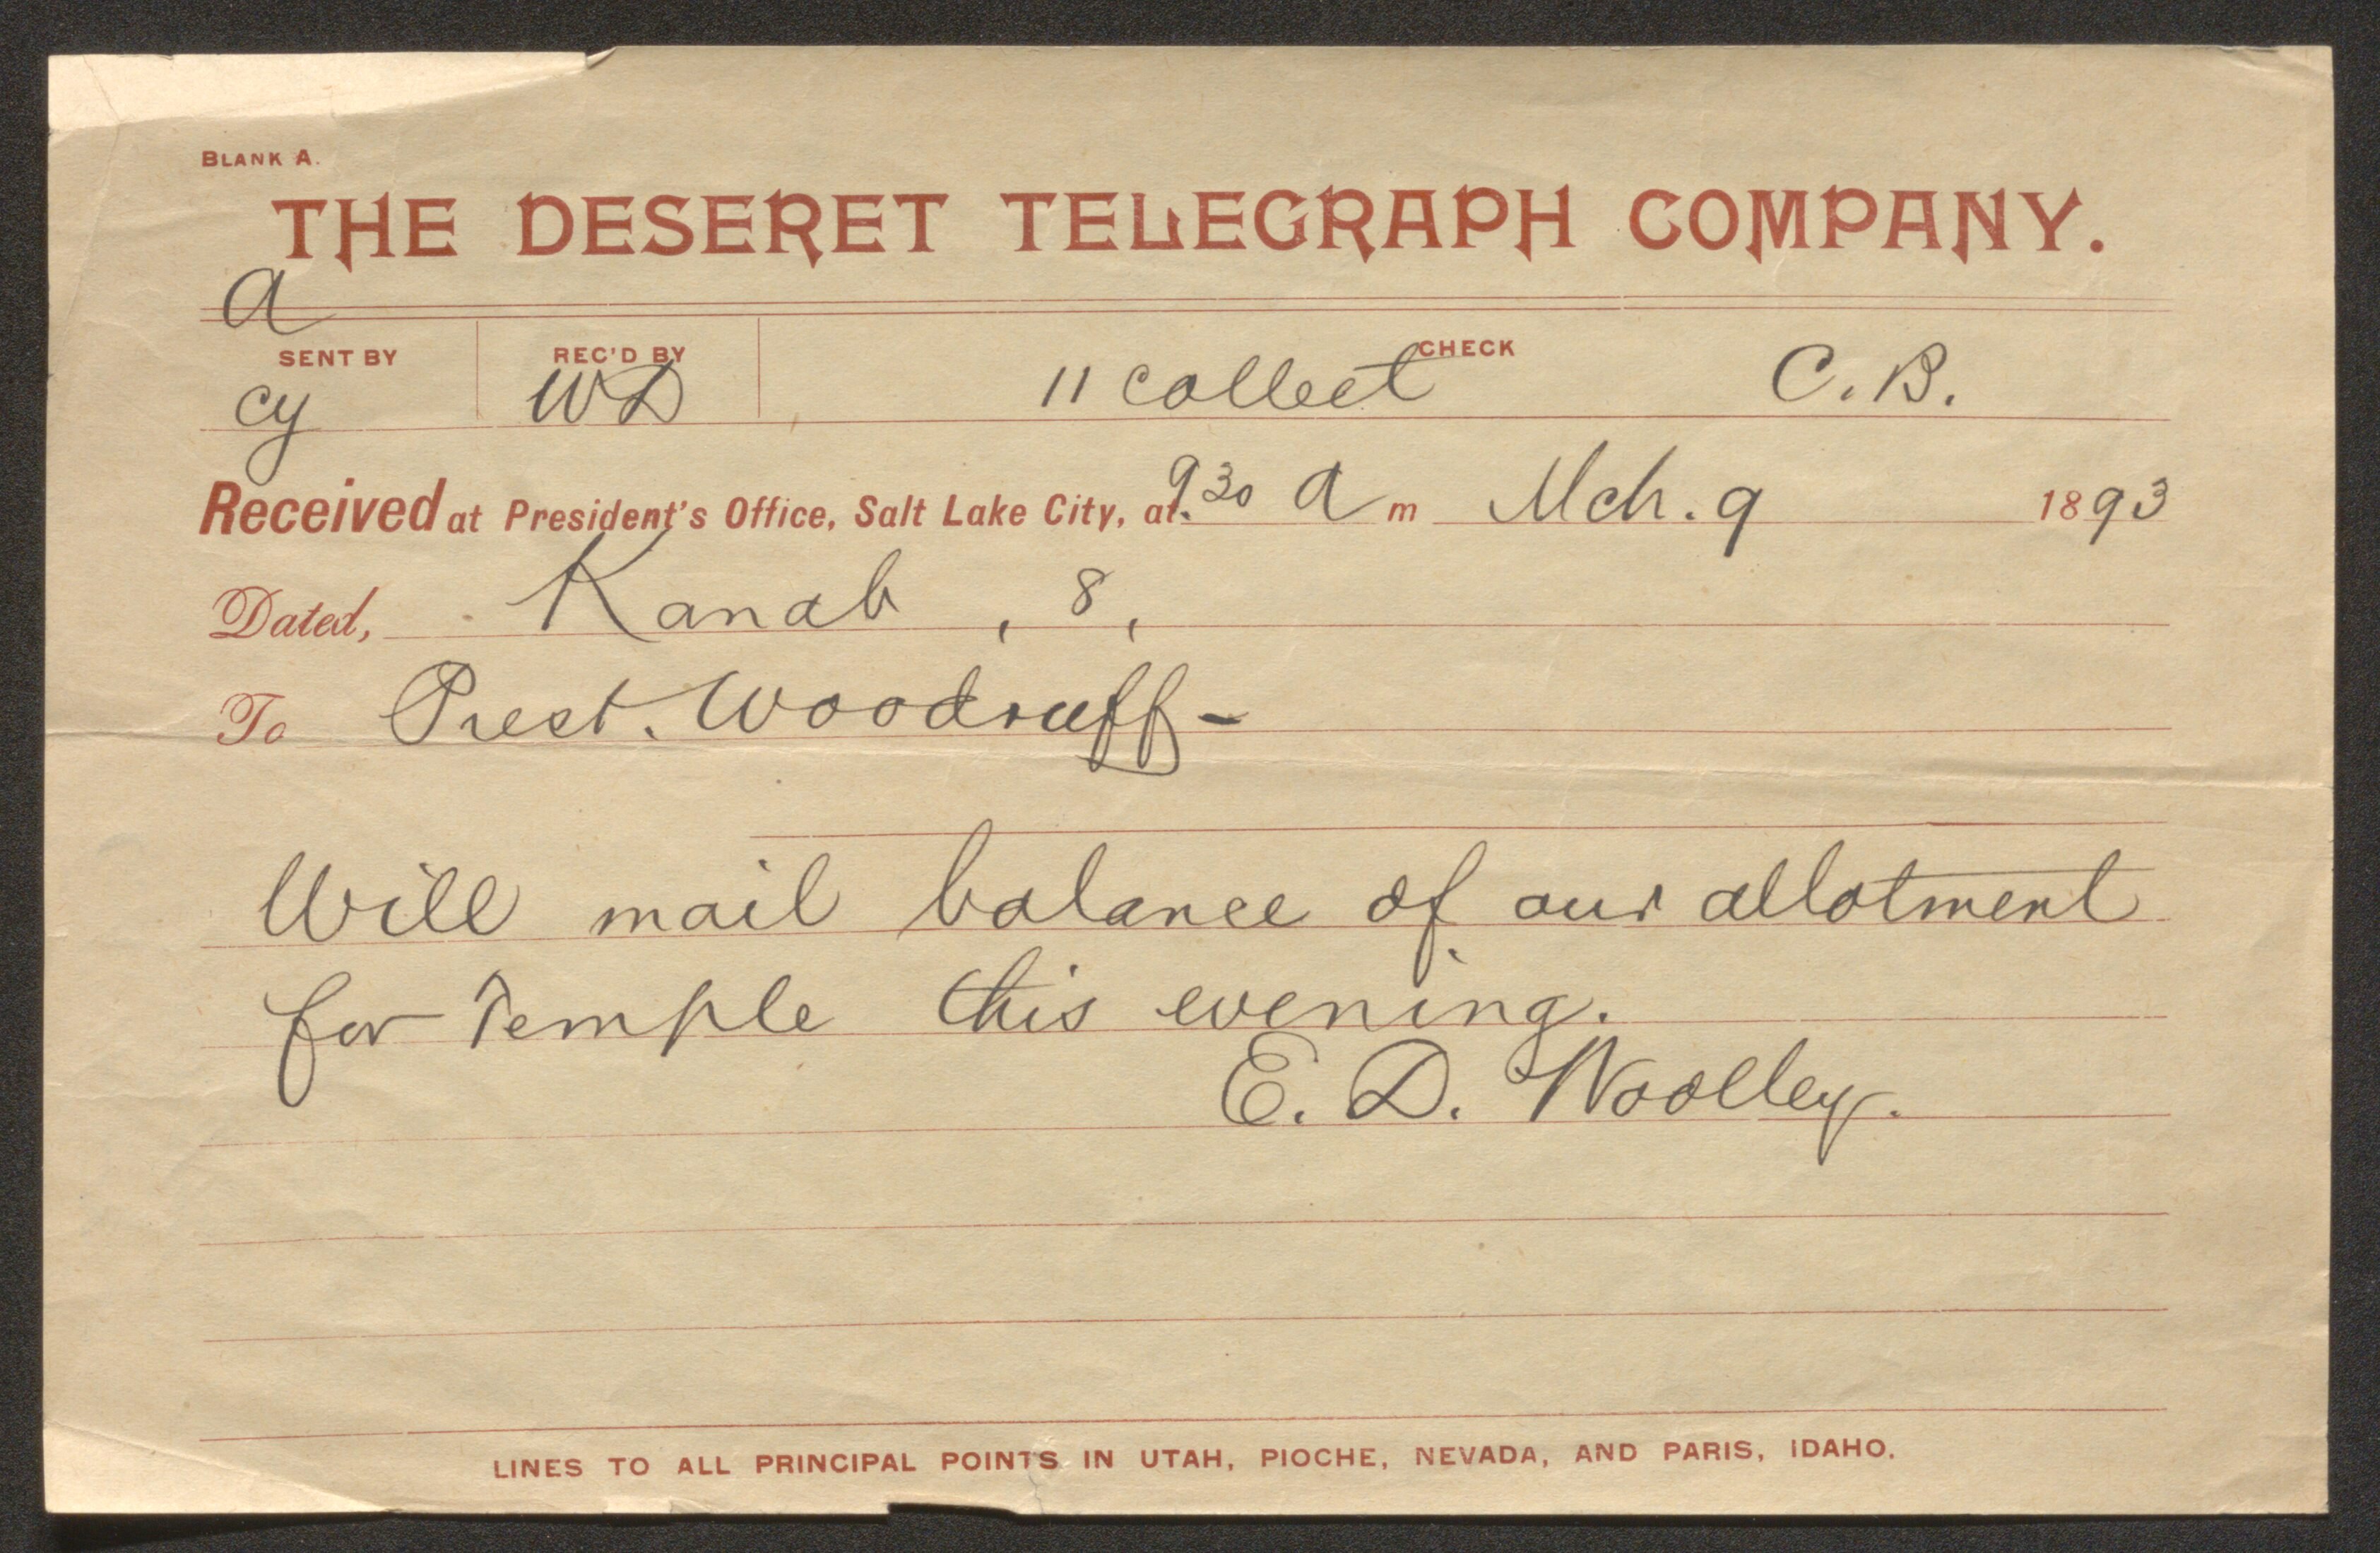 BLANK A.
THE DESERET TELEGRAPH COMPANY.
a
SENT BY REC'D BY CHECK
cy WD 11 collect C. B.
Received at President's Office, Salt Lake City, at 9.30 a m Mch. 9 1893
Dated, Kanab, 8,
To Prest. Woodruff-
Will mail balance of our allotment
for Temple this evening.
E. D. Woolley.
LINES TO ALL PRINCIPAL POINTS IN UTAH, PIOCHE, NEVADA, AND PARIS, IDAHO.